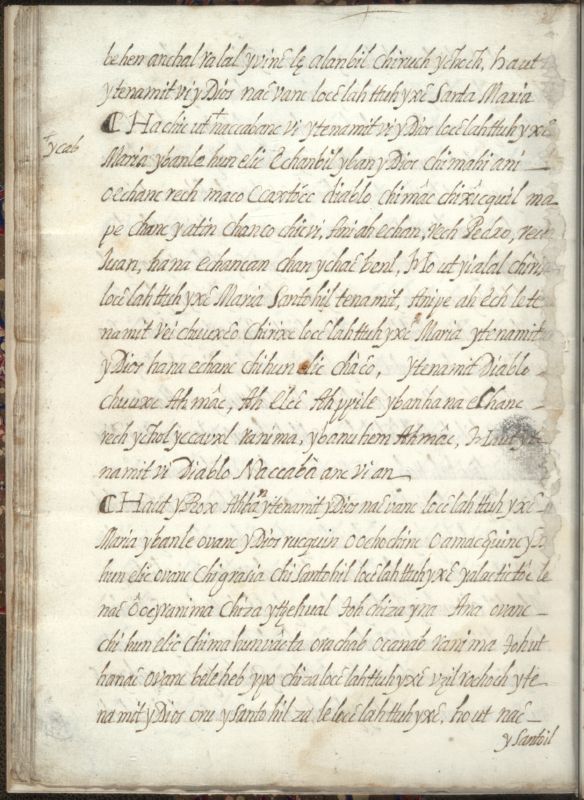 behen anchal ralal yvinē lę alanbil chiruch ychoch. haut
ytenamit vi yDios naē vanc locē lah ttuh yxē Santa Maria
Hachic ut naccabanc vi ytenamit vi yDios locē lah ttuh yxē
ycab
Maria ybanle hun elic Echanbil yban yDios chimahi ani
oechanc rech maco Diablo chimâc chixucquil ma
pe chanc yatin chanco chicvi, Ani ah echan, rech Pedro, rech
Juan, hana echancan chan ychaē bonl, Ho ut yialal chiri
locē lah ttuh yxē Maria Santohil tenamit, Aniye ah ēch le te
namit vei chuuxēo Chirixe locē lah ttuh yxē Maria ytenamit
yDios hana echanc chi hun elic chāēo, ytenamit Diablo
chuuxc Ah mâc, Ah Elēē Ah ppile ybanhana echanc
rech ychol yccauxl ranima, ybanuhem Ah mâc, Haut yte
namit vi Diablo Naccabâ anc vi an
Haut yRox ytenamit yDios naē vanc locē lah ttuh yxē
Maria ybanle ovanc yDios rucquin oochochinc
hun elic ovanc Chigrasia chi Santohil locē lah ttuh yxē yalactictōc le
naē ôoc yranima Chiza Joh chiza yna Ana ovanc
chi hun elic chima hunvâcta orachab ocanab ranima Joh ut
hanâc ovanc beleheb ypo chiza locē lah ttuh yxē vzil rochoch yte
namit yDios cru ySanto hil za, le locē lah ttuh yxē, ho ut naē
ySantoil